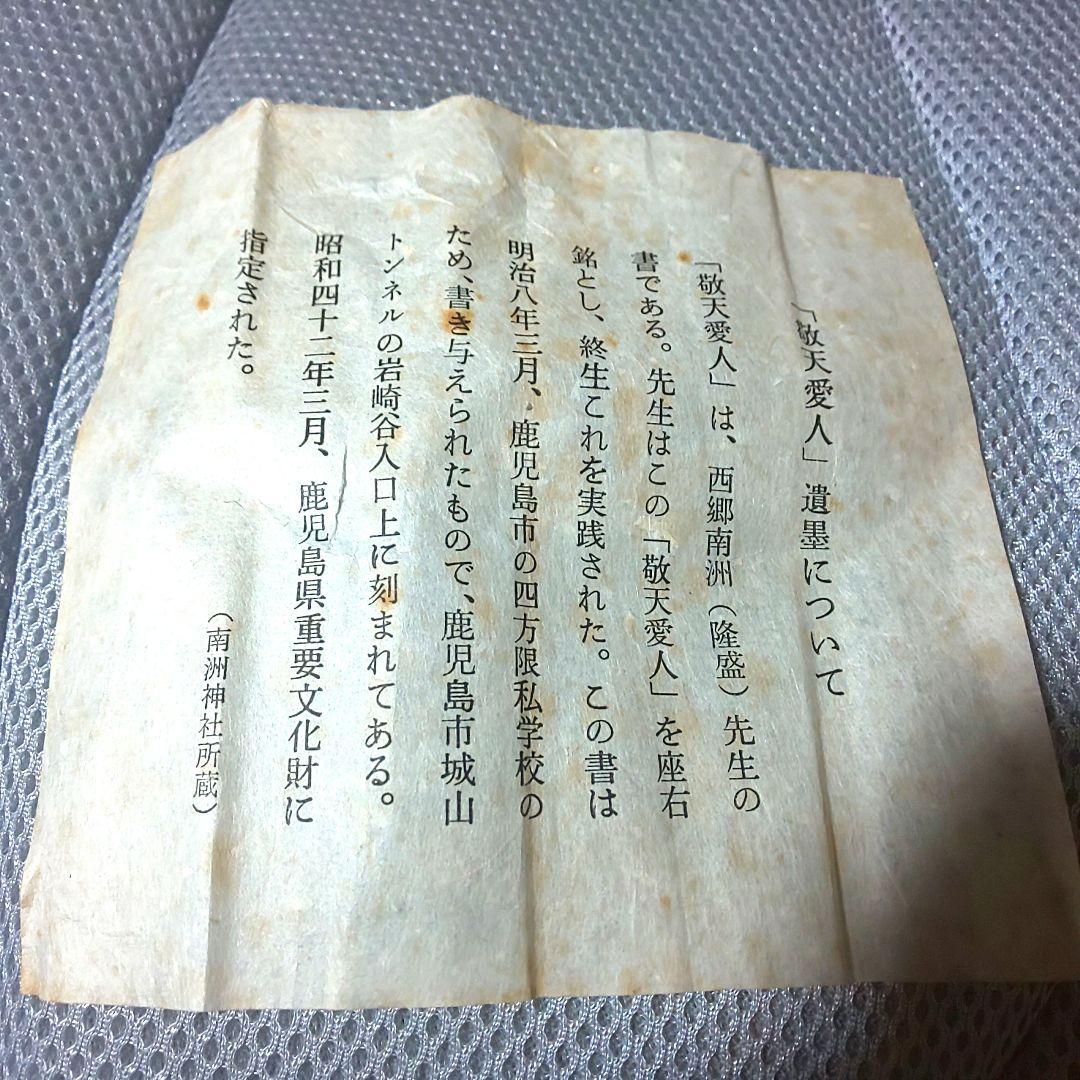 「敬天愛人」遺墨について
「敬天愛人」は、西郷南洲（隆盛）先生の
書である。先生はこの「敬天愛人」を座右
銘とし、終生これを実践された。この書は
明治八年三月、鹿児島市の四方限私学校の
ため、書き与えられたもので、鹿児島市城山
トンネルの岩崎谷入口上に刻まれてある。
昭和四十二年三月、鹿児島県重要文化財に
指定された。
（南洲神社所蔵）